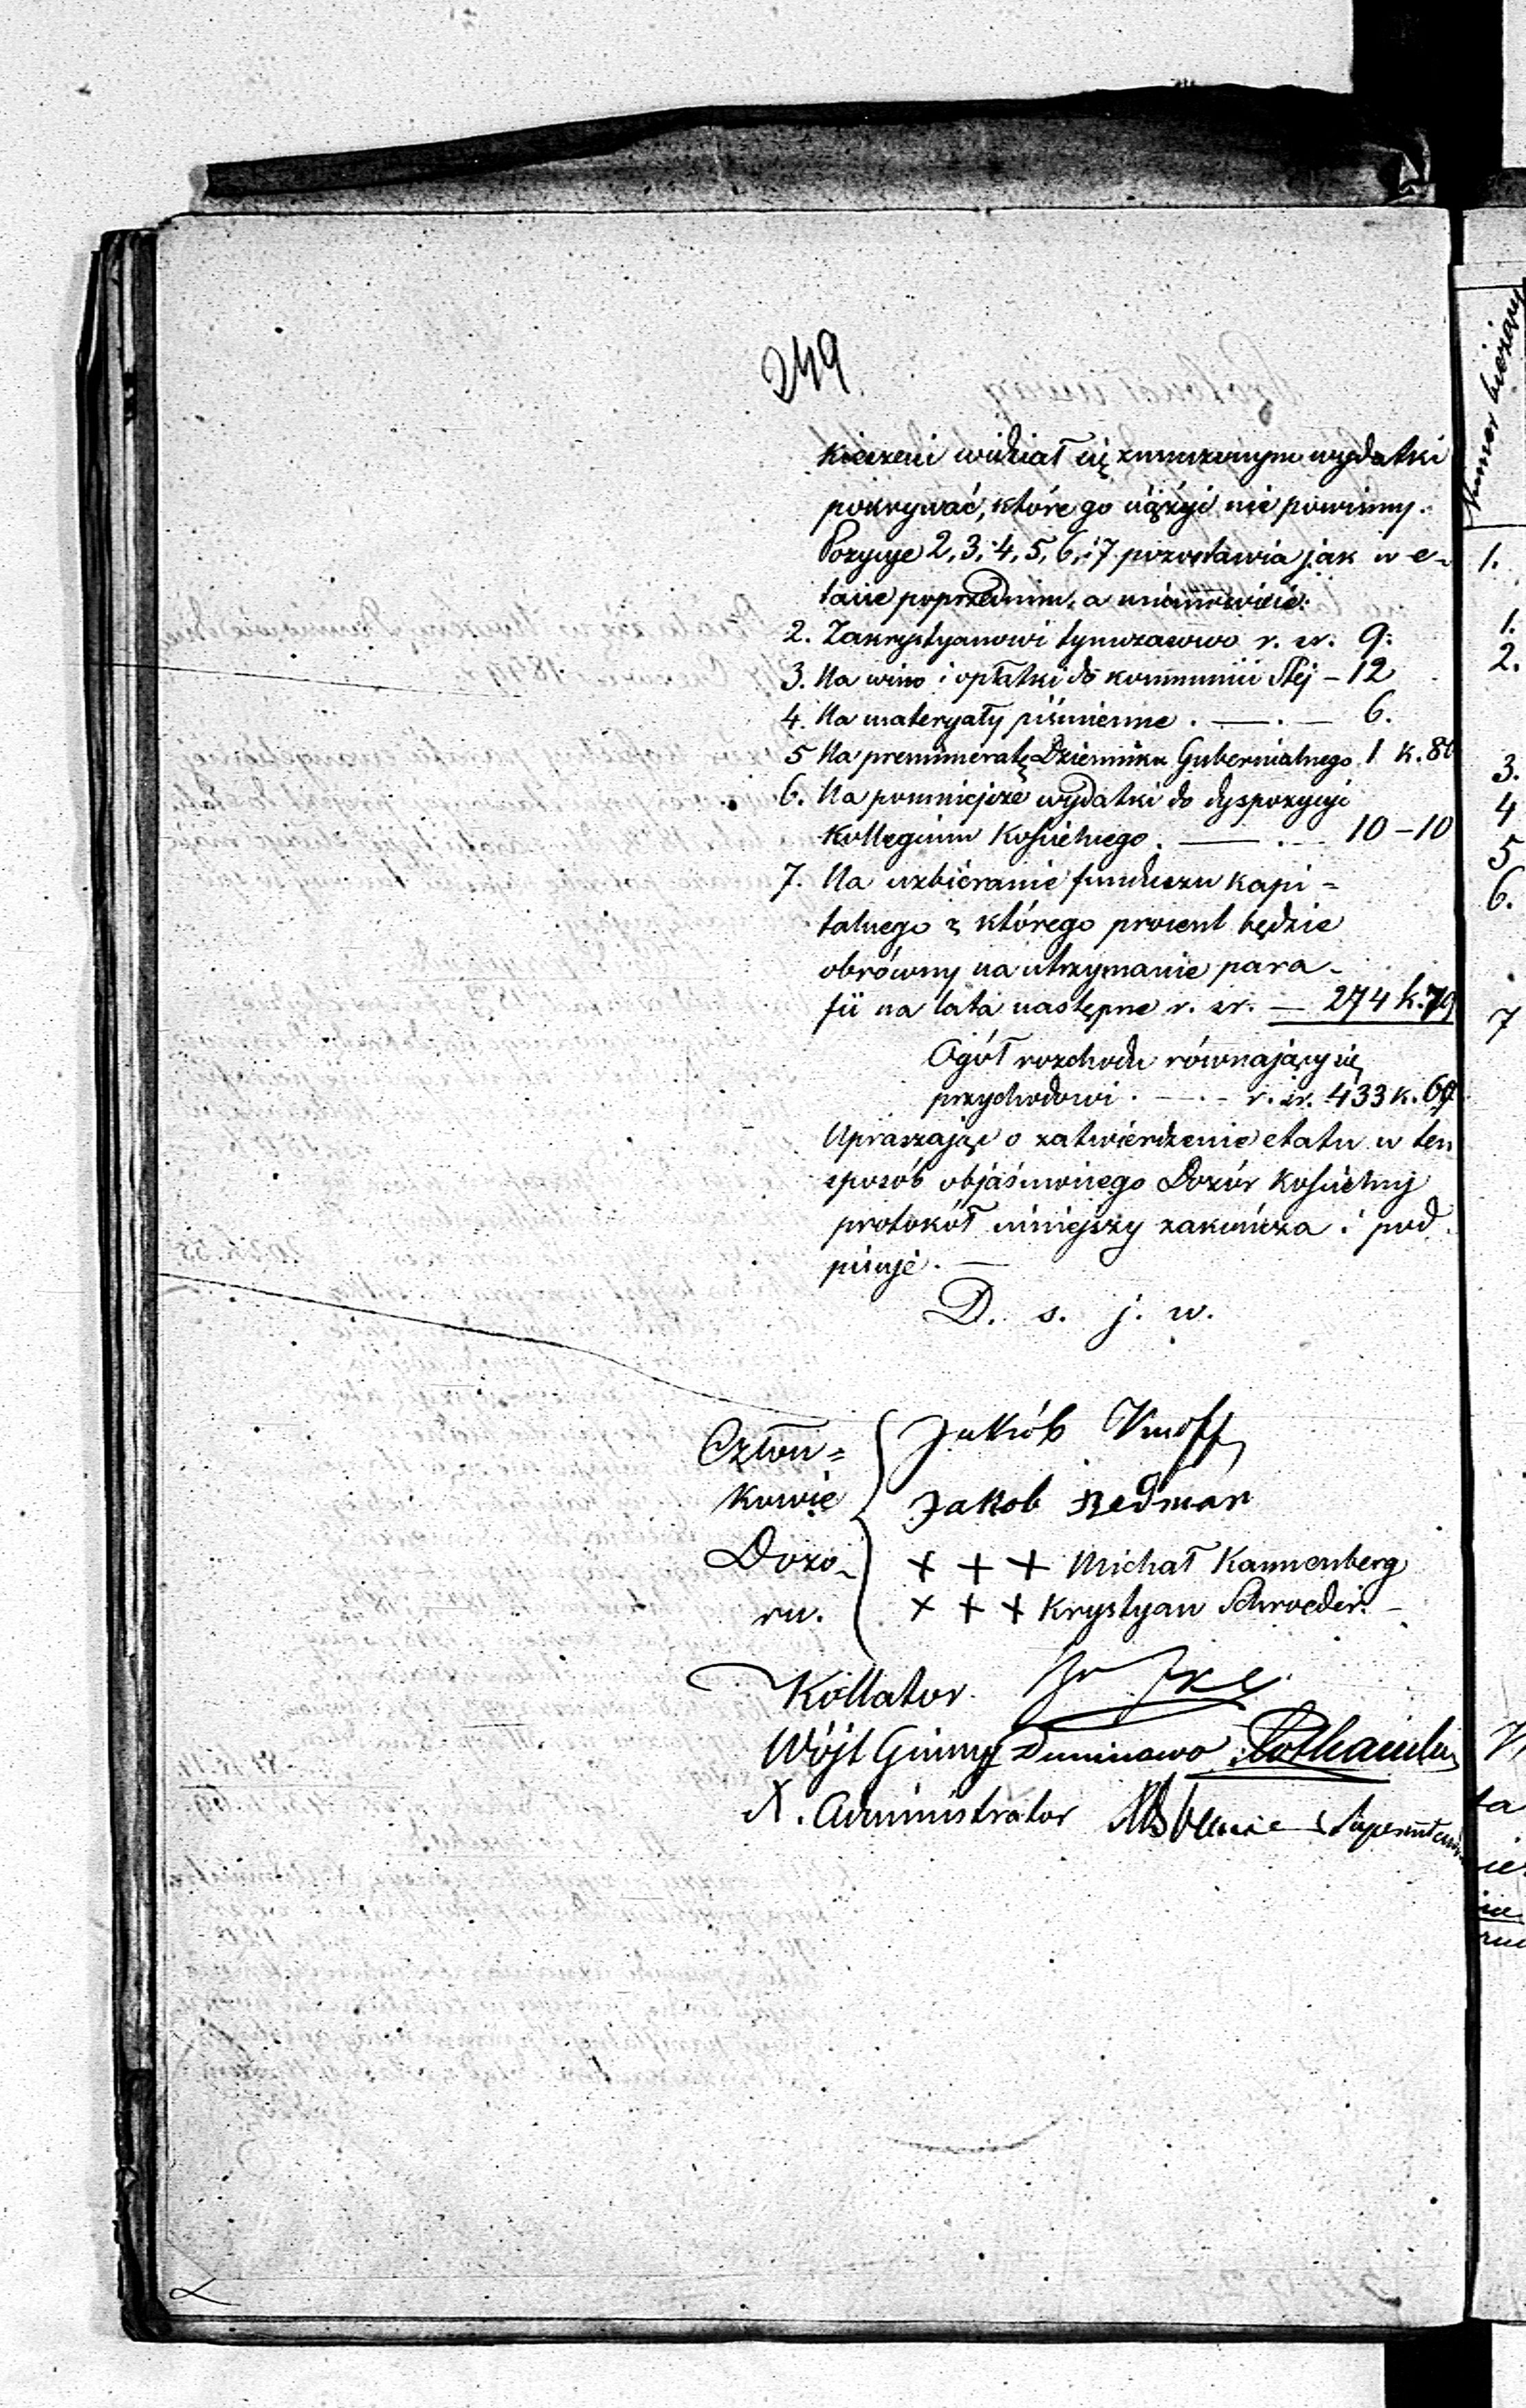 249
kieszeni widział się zmuszonym wydatki
pokrywać, które go ciążyć nie powinny.
Pozycye 2, 3, 4, 5, 6, i 7 pozostawia jak w e-
tacie poprzednim, a mianowicie:
2. Zakrystyanowi tymczasowo r. sr. 9.
3. Na wino i opłatki do kommunii Stej - 12
4. Na materyały piśmienne . — . — 6.
5 Na prenumeratę Dziennika Gubernialnego 1 k. 80
6. Na pomniejsze wydatki do dyspozycyi
Kollegium Kościelnego . — . — 10 - 10
7. Na uzbieranie funduszu kapi=
talnego z którego procent będzie
obrócony na utrzymanie para-
fii na lata następne r. sr. — 274 k. 79
Ogół rozchodu równający się
przychodowi . — . - r. sr. 433 k. 69
Upraszając o zatwierdzenie etatu w ten
sposób objaśnionego Dozór Kościelny
protokół niniejszy zakończa i pod
pisuje. —
D. s. j. w.
Człon=
kowie
Dozo-
ru.
Jakób Knoff
Jakob Redmar
+ + + Michał Kannenberg
+ + + Krystyan Schroeder. -
Kollator
Wójt Gminy Duninowo
X. Administrator Superinten
Numer bieżący
1.
1.
2.
3.
4
5
6.
7